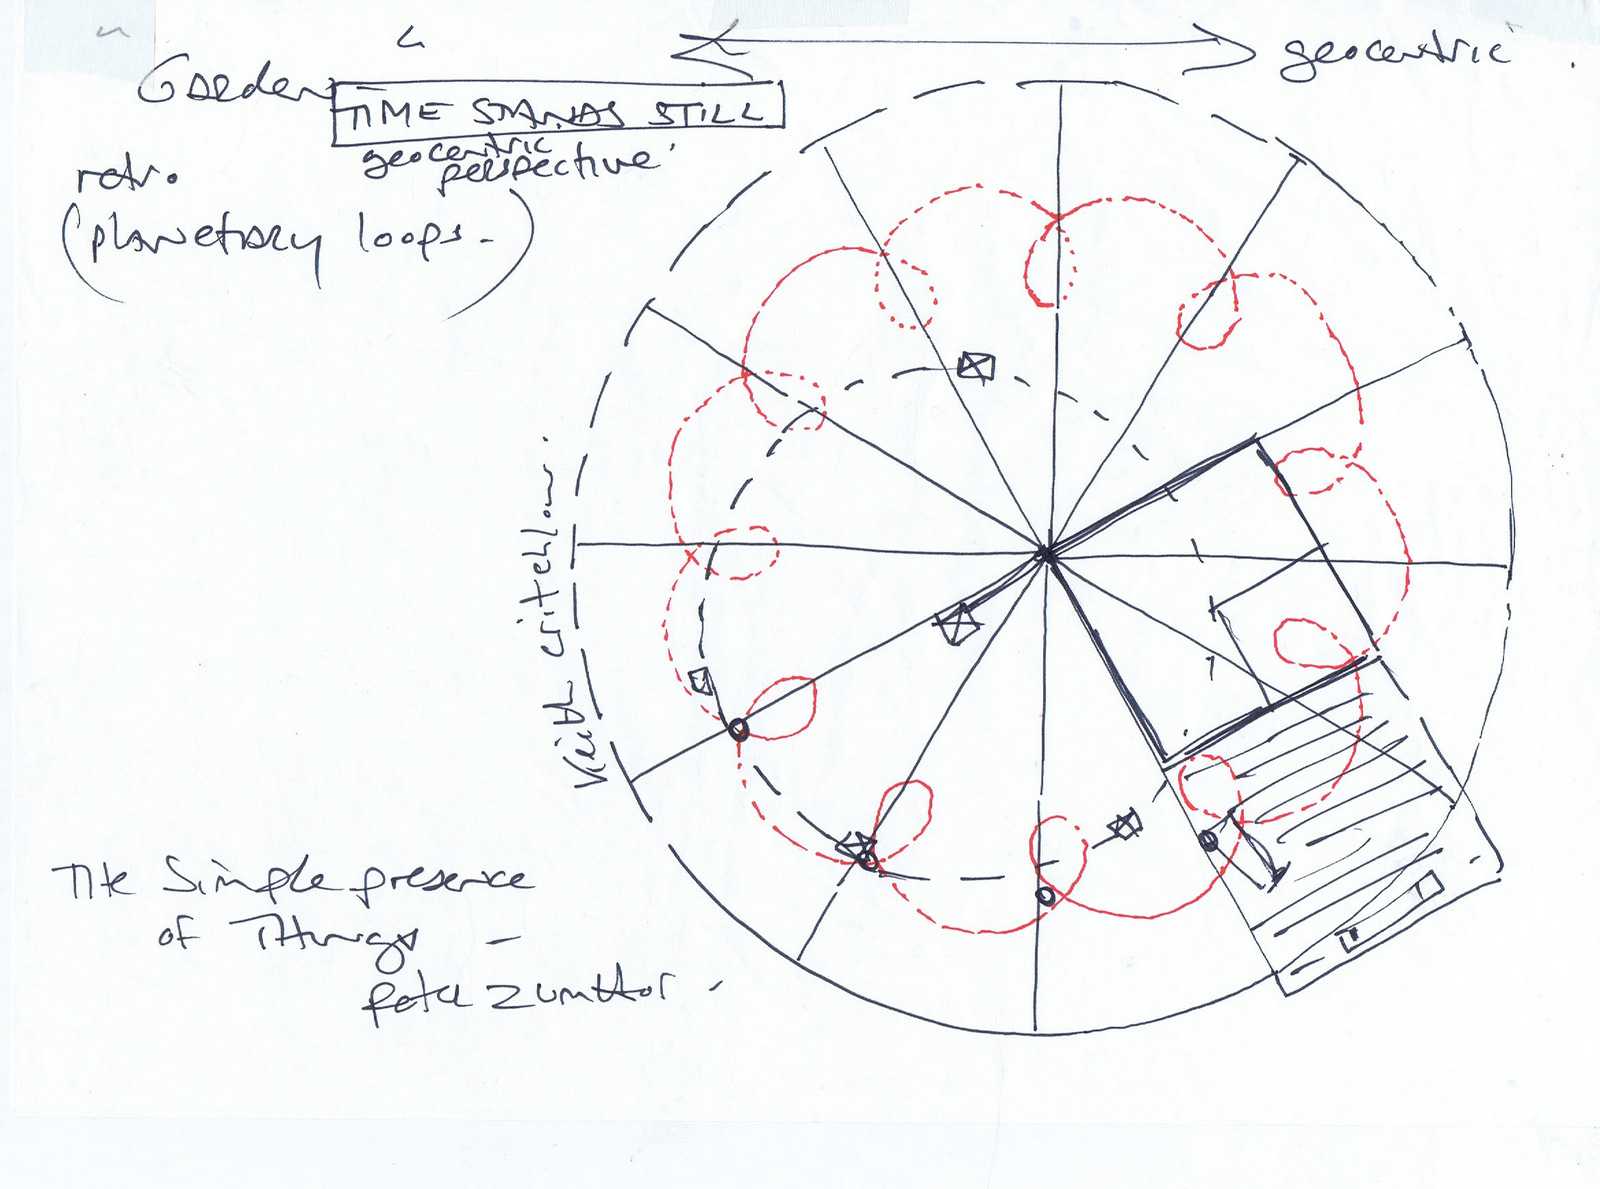 Garden
TIME STANDS STILL
geocentric
perspective
geocentric
retr.
(planetary loops -)
Keith Critchlow.
THE Simple presence
of THings -
peter zumthor -